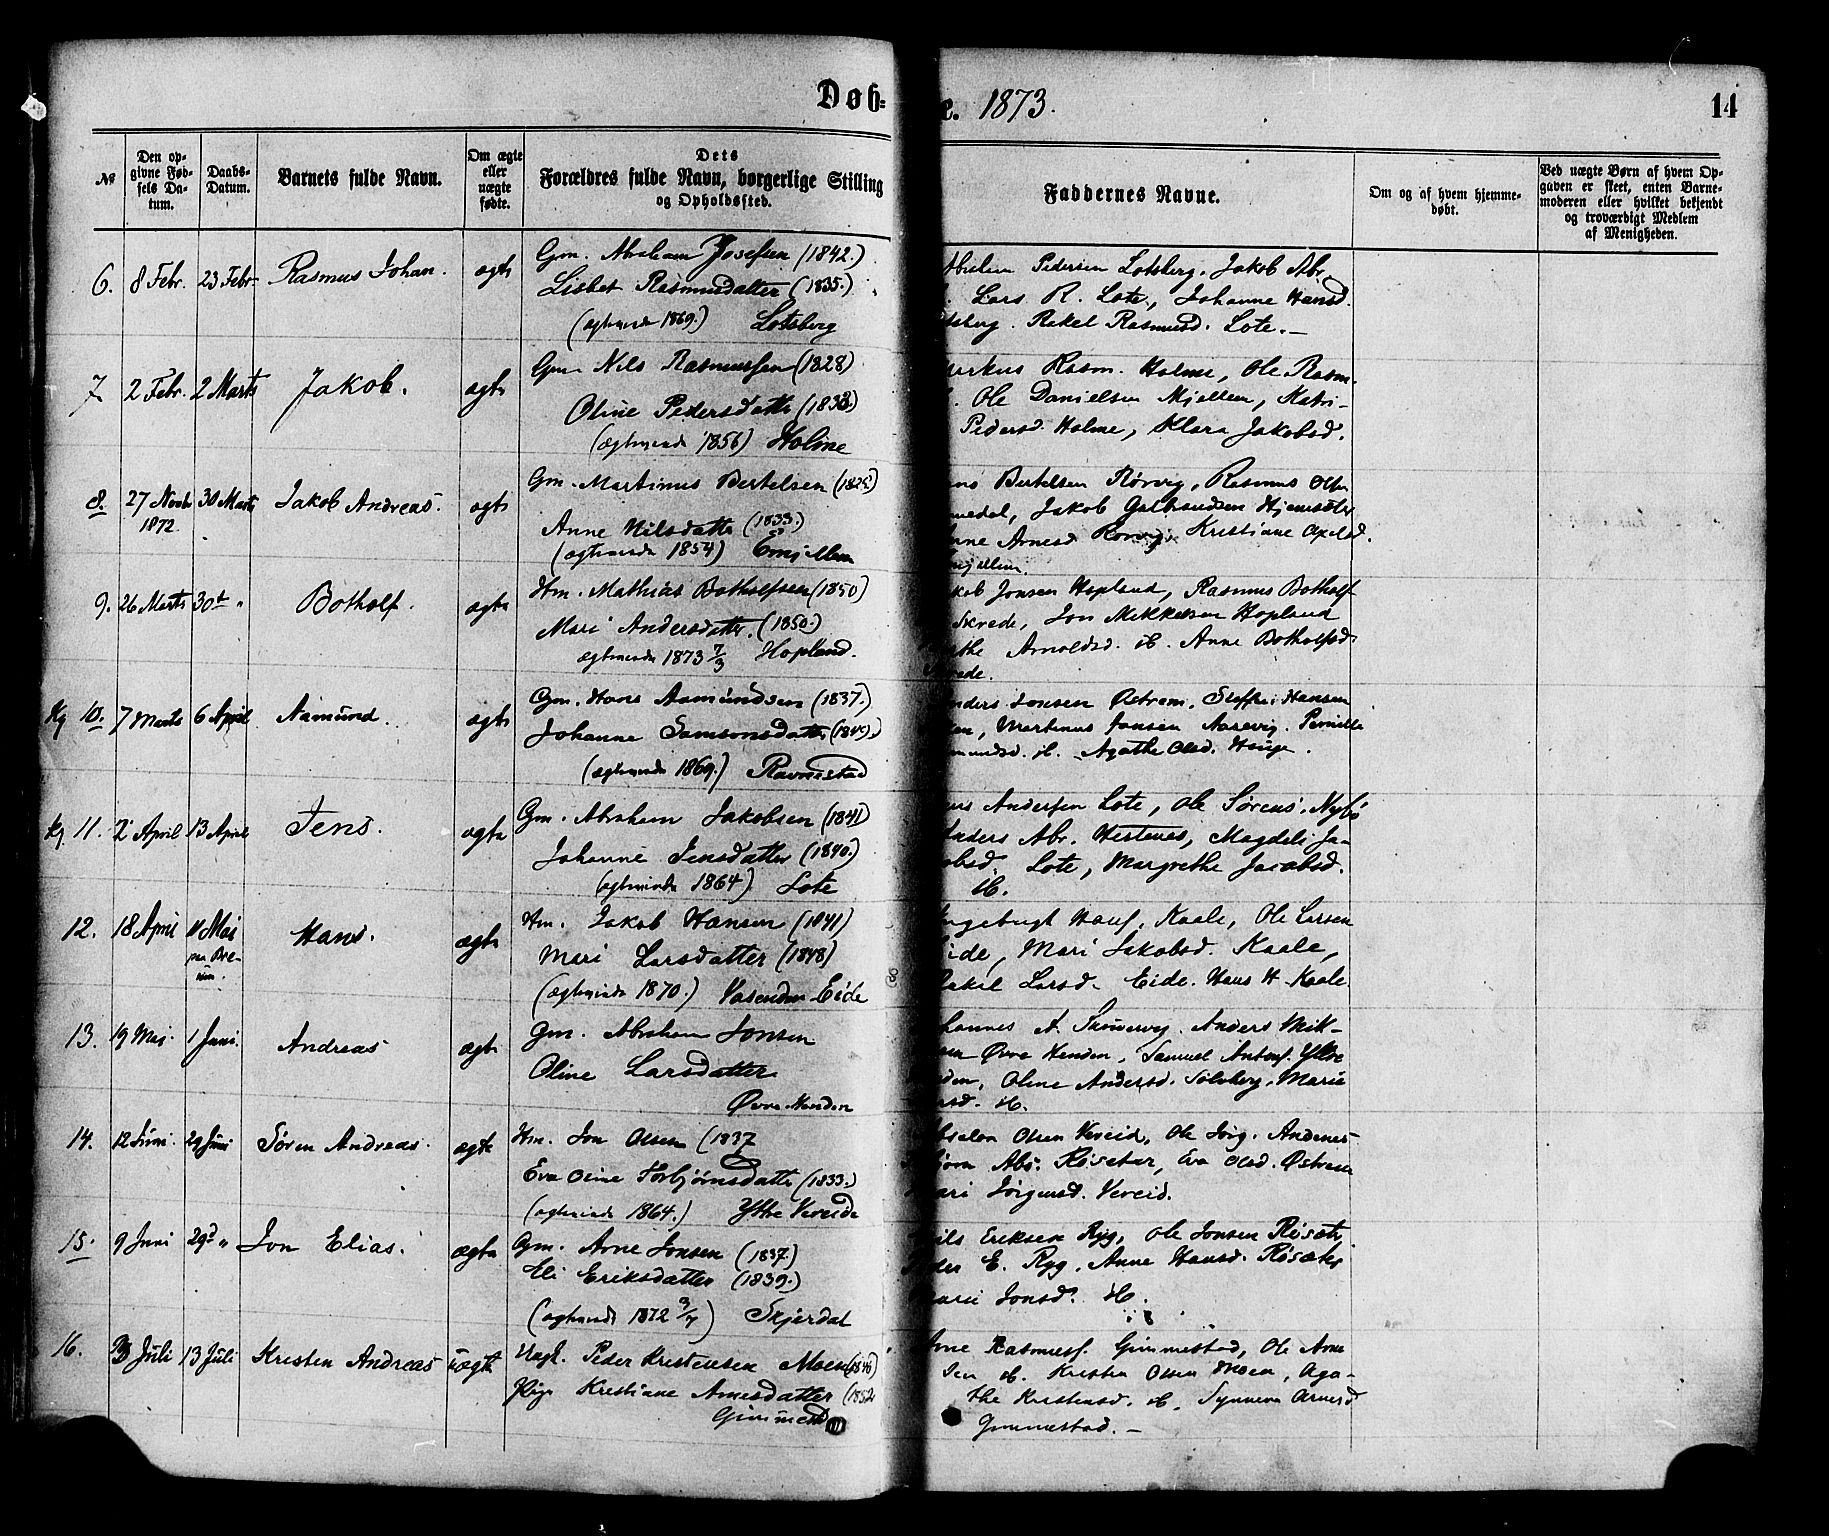 Døb=
e. 1873.
14
№
Den op-
givne Fød-
sels Da-
tum.
Daabs-
Datum.
Barnets fulde Navn.
Om ægte
eller
uægte
fødte.
Dets
Forældres fulde Navn, borgerlige Stilling
og Opholdssted.
Faddernes Navne.
Om og af hvem hjemme-
døbt.
Ved uægte Børn af hvem Op-
gaven er skeet, enten Barne-
moderen eller hvilket bekjendt
og troværdigt Medlem
af Menigheden.
6. 8 Febr. 23 Febr. Rasmus Johan. ægte
Gm. Abraham Josefsen (1842.)
Lisbet Rasmusdatter (1835.)
(ægteviede 1869.) Lotsberg
Pedersen Lotsberg. Jakob Abr.
Lars R. Lote, Johanne Hansd.
Rakel Rasmusd. Lote. —
7. 2 Febr. 2 Marts Jakob. ægte
Gm. Nils Rasmussen (1828)
Oline Pedersdatter
(ægteviede 1856) Holme
Rasm. Holme, Ole Rasm.
Ole Danielsen Mjellem, Katri-
Pedersd. Holme, Klara Jakobsd.
8. 27 Novbr 1872. 30 Marts Jakob Andreas. ægte
Gm. Martinus Bertelsen
Anne Nilsdatter (1833.)
(ægteviede 1854) Emjellem
Bertelsen Rørvig, Rasmus Olsen
Jakob Gulbrandsen
Arnesd. Rørvig Kristiane Axelsd.
9. 26 Marts 30te " Botholf. ægte
Hm. Mathias Botholfsen (1850)
Mari Andersdatter. (1850.)
ægteviede 1873 7/3 Hopland.
Jonsen Hopland, Rasmus Botholf-
Skrede, Jon Mikkelsen Hopland
Arnoldsd. ib. Anne Botholfsd.
10. 7 Marts 6 April Aamund. ægte
Gm. Hans Aamundsen (1837.)
Johanne Samsonsdatter
(ægteviede 1869.) Ravnestad
Jonsen Østrem, Steffen Hansen
Martinus Jansen Aasevig. Pernille
ib. Agathe Olsd. Hauge.
11. 2 April 13 April Jens. ægte
Gm. Abraham Jakobsen (1841)
Johanne Jensdatter (1840.)
(ægteviede 1864) Lote
Andersen Lote, Ole Sørens. Nybø
Anders Abr. Hestenes, Magdeli Ja-
Lote, Margrethe Jacobsd.
ib.
12. 18 April 11 Mai paa Bre- Hans. ægte
Hm. Jakob Hansen (1841)
Mari Larsdatter (1848)
(ægteviede 1870.) Vasenden Eide
Hans. Kaale, Ole Larsen
Eide, Mari Jakobsd. Kaale,
Rakel Larsd. Eide. Hans H. Kaale
13. 19 Mai. 1 Juni. Andreas ægte
Gm. Abraham Jonsen
Oline Larsdatter
Øvre Henden
A. Anders Mik-
Øvre Henden, Samuel Antonf. Ytre
Oline Andersd. Solsberg. Marie
ib.
14. 12 Juni. 29 Juni Søren Andreas. ægte
Hm. Jon Olsen (1837
Eva Oline Torbjørnsdatter (1833.)
(ægteviede 1864.) Ytre Vereide
Olsen Vereid, Ole Jörg. Andenes
Abs. Røsetar, Eva Olsd. Østrem
Mari Jørgensd. Vereid.
15. 9 Juni 29de " Jon Elias. ægte
Gm. Arne Jonsen (1837.)
Eli Eriksdatter (1839.)
(ægteviede 1872 3/7) Skjerdal
Nils Eriksen Ryg, Ole Jonsen Røsæt,
E. Ryg. Anne Hansd. Røsæter
Marie Jonsd. ib.
16. 3 Juli 13 Juli Kristen Andreas uægte
Ungk. Peder Kristensen Moen
Pige Kristiane Arnesdatter (1852
Gimmestad
Arne Rasmusf. Gimmestad, Ole Arne
sen ib. Kristen Olsen Moen, Aga-
the Kristensd. ib. Synneva Arnesd
Gimmestad. —